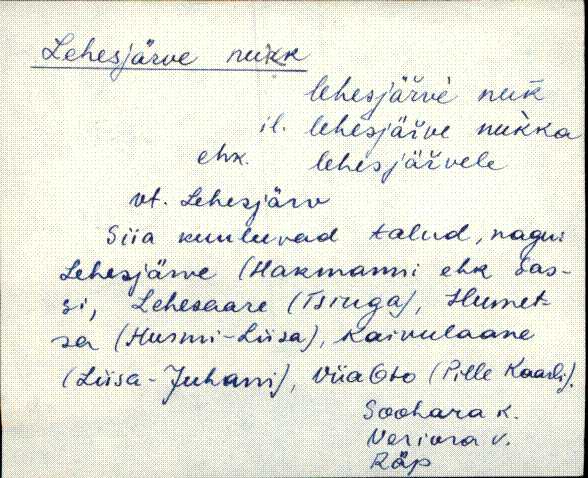 Lehesjärve nukk
lehesjäřvè nuk̄
il. lehesjäřve nuk̀ka
ehk. lehesjäřvele
vt. Lehesjärv
Siia kuuluvad talud, nagu:
Lehesjärve (Hakmanni ehk Sas-
si, Lehesaare (Tsinga), Humet-
sa (Hurmi-Liisa), Kaivulaane
(Liisa-Juhani), (Pille Kaarli).
Soohara k.
Veriora v.
Räp